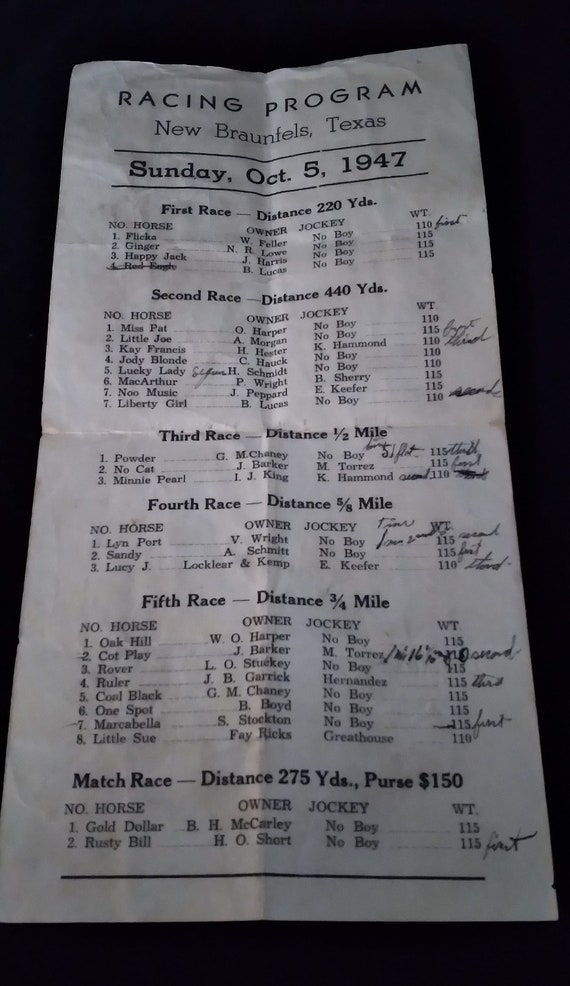 RACING PROGRAM
New Braunfels, Texas
Sunday, Oct. 5, 1947
First Race — Distance 220 Yds.
NO. HORSE OWNER JOCKEY WT.
1. Flicka W. Feller No Boy 110 first
2. Ginger N. R. Lowe No Boy 115
3. Happy Jack J. Harris No Boy 115
4. Red Eagle B. Lucas No Boy 115
Second Race — Distance 440 Yds.
NO. HORSE OWNER JOCKEY WT.
1. Miss Pat O. Harper No Boy 110
2. Little Joe A. Morgan No Boy 115 first
3. Kay Francis H. Hester K. Hammond 110 third
4. Jody Blonde C. Hauck No Boy 110
5. Lucky Lady H. Schmidt No Boy 110
6. MacArthur P. Wright B. Sherry 115
7. Noo Music J. Peppard E. Keefer 115 second
7. Liberty Girl B. Lucas No Boy 110
Third Race — Distance ½ Mile
1. Powder G. M.Chaney No Boy 51 flat 115 third
2. No Cat J. Barker M. Torrez 115 first
3. Minnie Pearl I. J. King K. Hammond second 110
Fourth Race — Distance ⅝ Mile
NO. HORSE OWNER JOCKEY Time WT.
1. Lyn Port V. Wright No Boy 115 second
2. Sandy A. Schmitt No Boy 115 first
3. Lucy J. Locklear & Kemp E. Keefer 110 third
Fifth Race — Distance ¾ Mile
NO. HORSE OWNER JOCKEY WT.
1. Oak Hill W. O. Harper No Boy 115
2. Cot Play J. Barker M. Torrez second
3. Rover L. O. Stuckey No Boy 115
4. Ruler J. B. Garrick Hernandez 115 third
5. Coal Black G. M. Chaney No Boy 115
6. One Spot B. Boyd No Boy 115
7. Marcabella S. Stockton No Boy 115 first
8. Little Sue Fay Ricks Greathouse 110
Match Race — Distance 275 Yds., Purse $150
NO. HORSE OWNER JOCKEY WT.
1. Gold Dollar B. H. McCarley No Boy 115
2. Rusty Bill H. O. Short No Boy 115 first